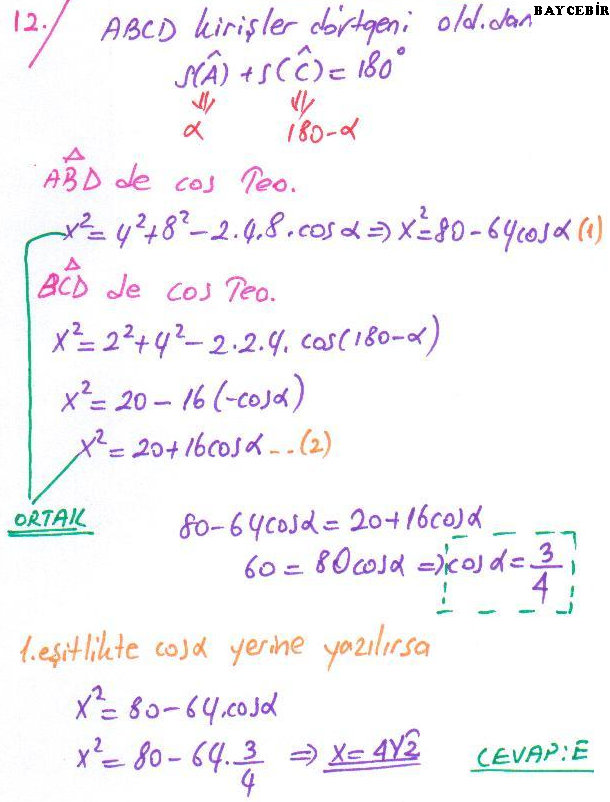 BAYCEBİR
12./ ABCD kirişler dörtgeni old.dan
s(Â) + s(Ĉ) = 180°
⇓ ⇓
α 180-α
ABD de cos Teo.
x² = 4² + 8² - 2.4.8.cosα ⇒ x² = 80 - 64cosα (1)
BCD de cos Teo.
x² = 2² + 4² - 2.2.4. cos(180-α)
x² = 20 - 16(-cosα)
x² = 20 + 16cosα ... (2)
ORTAK
80 - 64cosα = 20 + 16cosα
60 = 80cosα ⇒ cosα = 3/4
1.eşitlikte cosα yerine yazılırsa
x² = 80 - 64.cosα
x² = 80 - 64.3/4 ⇒ x = 4√2
CEVAP:E